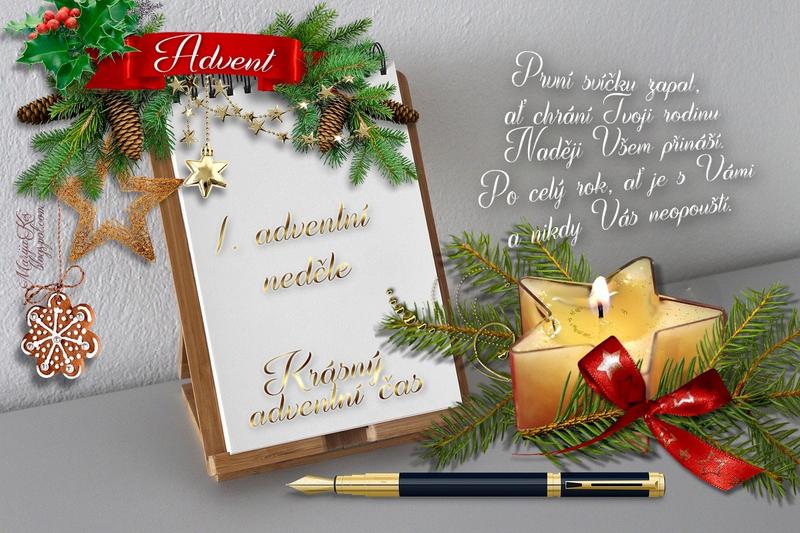 Advent
1. adventní
neděle
Krásný
adventní čas
První svíčku zapal,
ať chrání Tvoji rodinu
Naději Všem přináší.
Po celý rok, ať je s Vámi
a nikdy Vás neopouští.